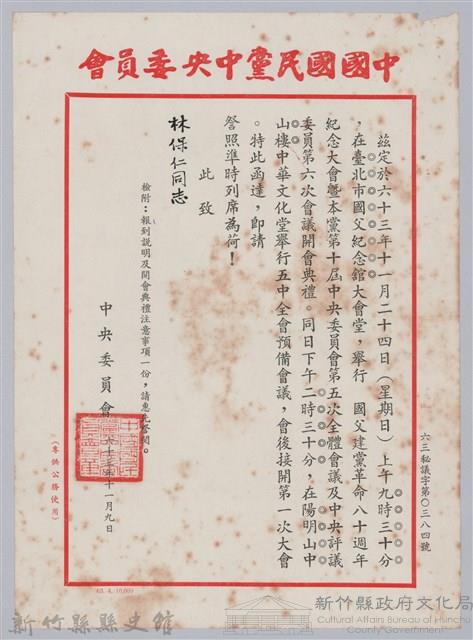 中國國民黨中央委員會
六三秘議字第〇三八四號
茲定於六十三年十一月二十四日（星期日）上午九時三十分
，在臺北市國父紀念館大會堂，舉行　國父建黨革命八十週年
紀念大會暨本黨第十屆中央委員會第五次全體會議及中央評議
委員第六次會議開會典禮。同日下午二時三十分，在陽明山中
山樓中華文化堂舉行五中全會預備會議，會後接開第一次大會
。特此函達，即請
詧照準時列席為荷！
此致
林保仁同志
檢附：報到說明及開會典禮注意事項一份，請惠先詧閱。
中央委員會
六十三年十一月九日
（專供公務使用）
63. 4. 10,000
新竹縣縣史館
新竹縣政府文化局
Cultural Affairs Bureau of Hsinchu
County Government